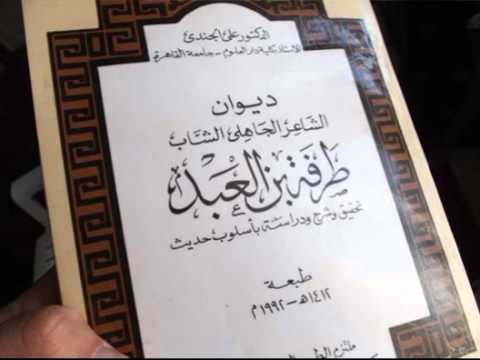 الدكتور على الجندى
الأستاذ بكلية دار العلوم - جامعة القاهرة
ديوان
الشاعر الجاهلى الشاب
طرفة بن العبد
تحقيق وشرح ودراسة بأسلوب حديث
طبعة
١٤١٢هـ - ١٩٩٢م
ملتزم الطبع